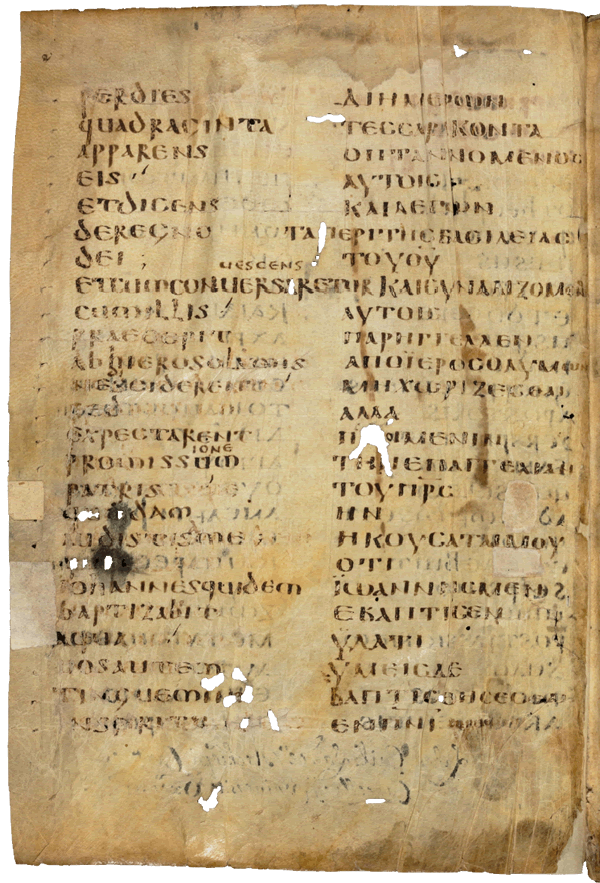 PERDIES
QUADRAGINTA
APPARENS
EIS
ETDICENS
DEREGNO
DEI
UESCENS
ETCUMCONUERSARETUR
CUMILLIS
PRAECEPIT
ABHIEROSOLYMIS
SED
EXPECTARENT
IONE
PROMISSUM
PATRIS
AUDISTISME
IOHANNESQUIDEM
BAPTIZABIT
AQUA
UOSAUTEM
TINGUEMINI
INSPIRITU
ΔΙΗΜΕΡΩΝ
ΤΕϹϹΑΡΑΚΟΝΤΑ
ΟΠΤΑΝΝΟΜΕΝΟϹ
ΑΥΤΟΙϹ
ΚΑΙΛΕΓΩΝ
ΤΑΠΕΡΙΤΗϹΒΑϹΙΛΕΙΑϹ
ΤΟΥΘΥ
ΚΑΙϹΥΝΑΛΙΖΟΜΕ
ΑΥΤΟΙϹ
ΠΑΡΗΓΓΕΛΛΕΝ
ΑΠΟΪΕΡΟϹΟΛΥΜΩ
ΜΗΧΩΡΙΖΕϹΘΑΙ
ΑΛΛΑ
ΠΕΡΙΜΕΝΙΝ
ΤΗΝΕΠΑΓΓΕΛΙΑΝ
ΤΟΥΠΡϹ
ΗΝ
ΗΚΟΥϹΑΤΑΙΜΟΥ
ΟΤΙ
ΙΩΑΝΝΗϹΜΕΝ
ΕΒΑΠΤΙϹΕΝ
ΥΔΑΤΙ
ΥΜΕΙϹΔΕ
ΒΑΠΤΙϹΘΗϹΕϹΘΑΙ
ΕΝΠΝΙ